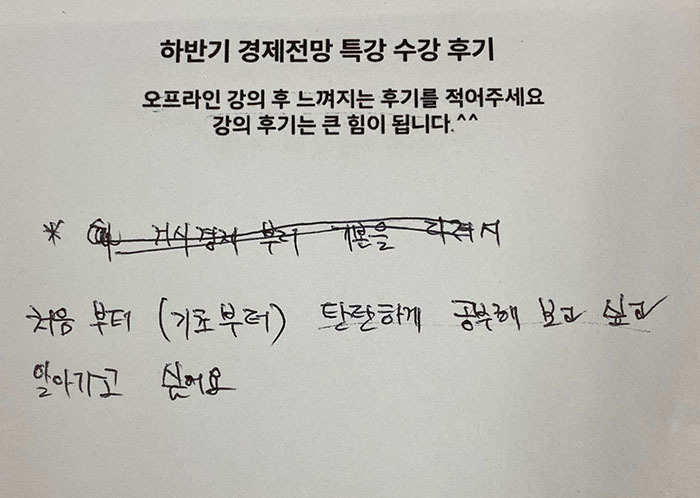 하반기 경제전망 특강 수강 후기
오프라인 강의 후 느껴지는 후기를 적어주세요
강의 후기는 큰 힘이 됩니다.^^
* 거시경제 부터 기본을 다져서
처음 부터 (기초부터) 탄탄하게 공부해 보고 싶고
알아가고 싶어요